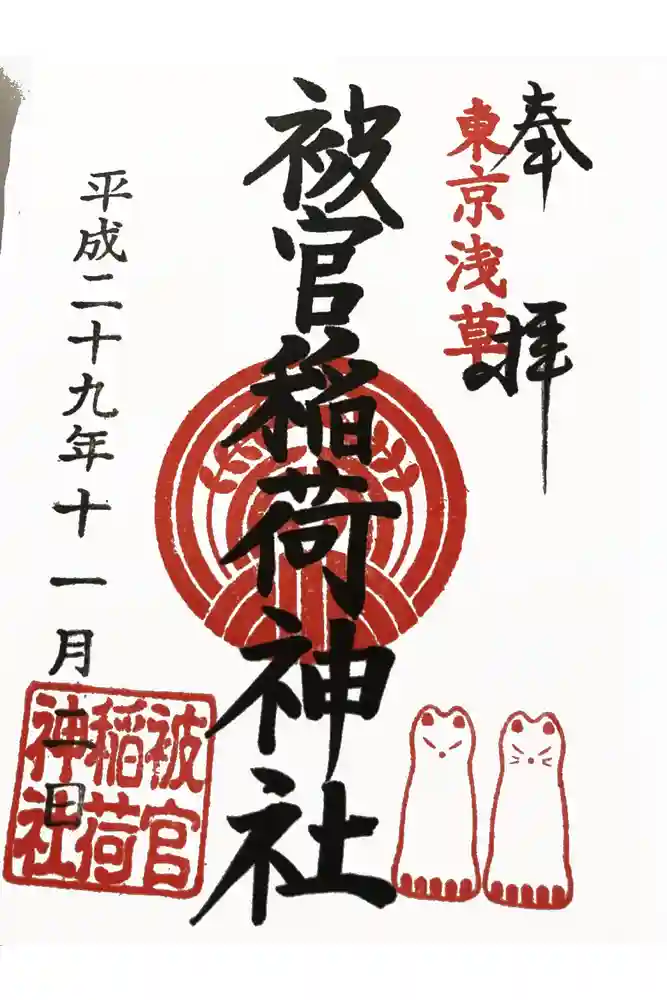 奉拝
東京浅草
被官稲荷神社
平成二十九年十一月二日
被官
稲荷
神社